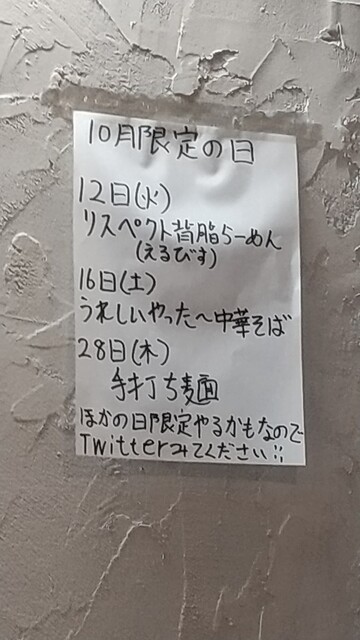 10月限定の日
12日(火)
リスペクト背脂らーめん
(えるびす)
16日(土)
うれしいやった〜中華そば
28日(木)
手打ち麺
ほかの日限定やるかもなので
Twitterみてください!!